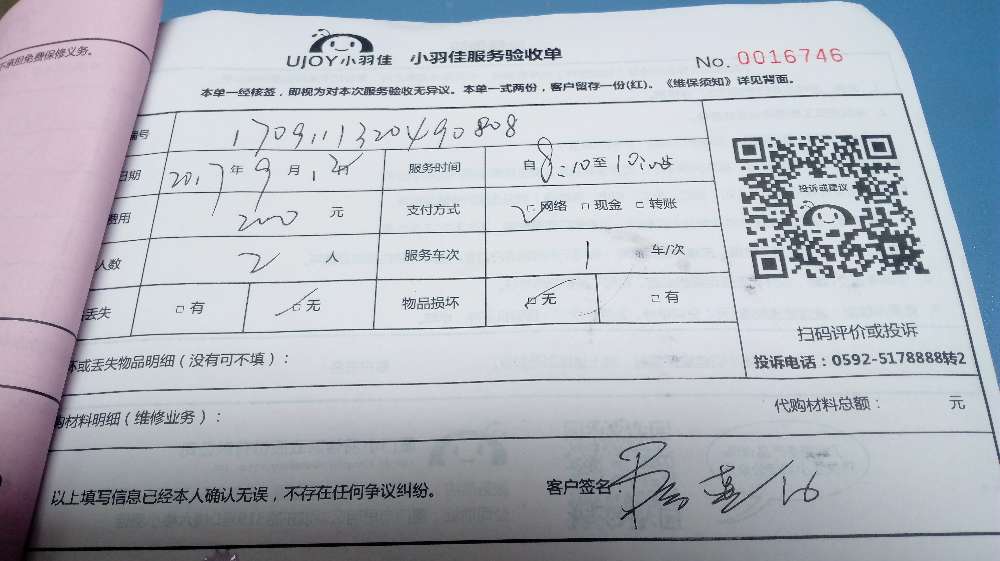 不承担免费保修义务。
UJOY小羽佳 小羽佳服务验收单
No. 0016746
本单一经核签，即视为对本次服务验收无异议。本单一式两份，客户留存一份(红)。《维保须知》详见背面。
编号 1709111320490808
日期 2017年9月12日 服务时间 自8:10至10:10
费用 200元 支付方式 □网络 □现金 □转账
人数 2人 服务车次 1 车/次
丢失 □有 □无 物品损坏 □无 □有
投诉或建议
扫码评价或投诉
投诉电话：0592-5178888转2
坏或丢失物品明细（没有可不填）：
购材料明细（维修业务）： 代购材料总额： 元
以上填写信息已经本人确认无误，不存在任何争议纠纷。 客户签名：